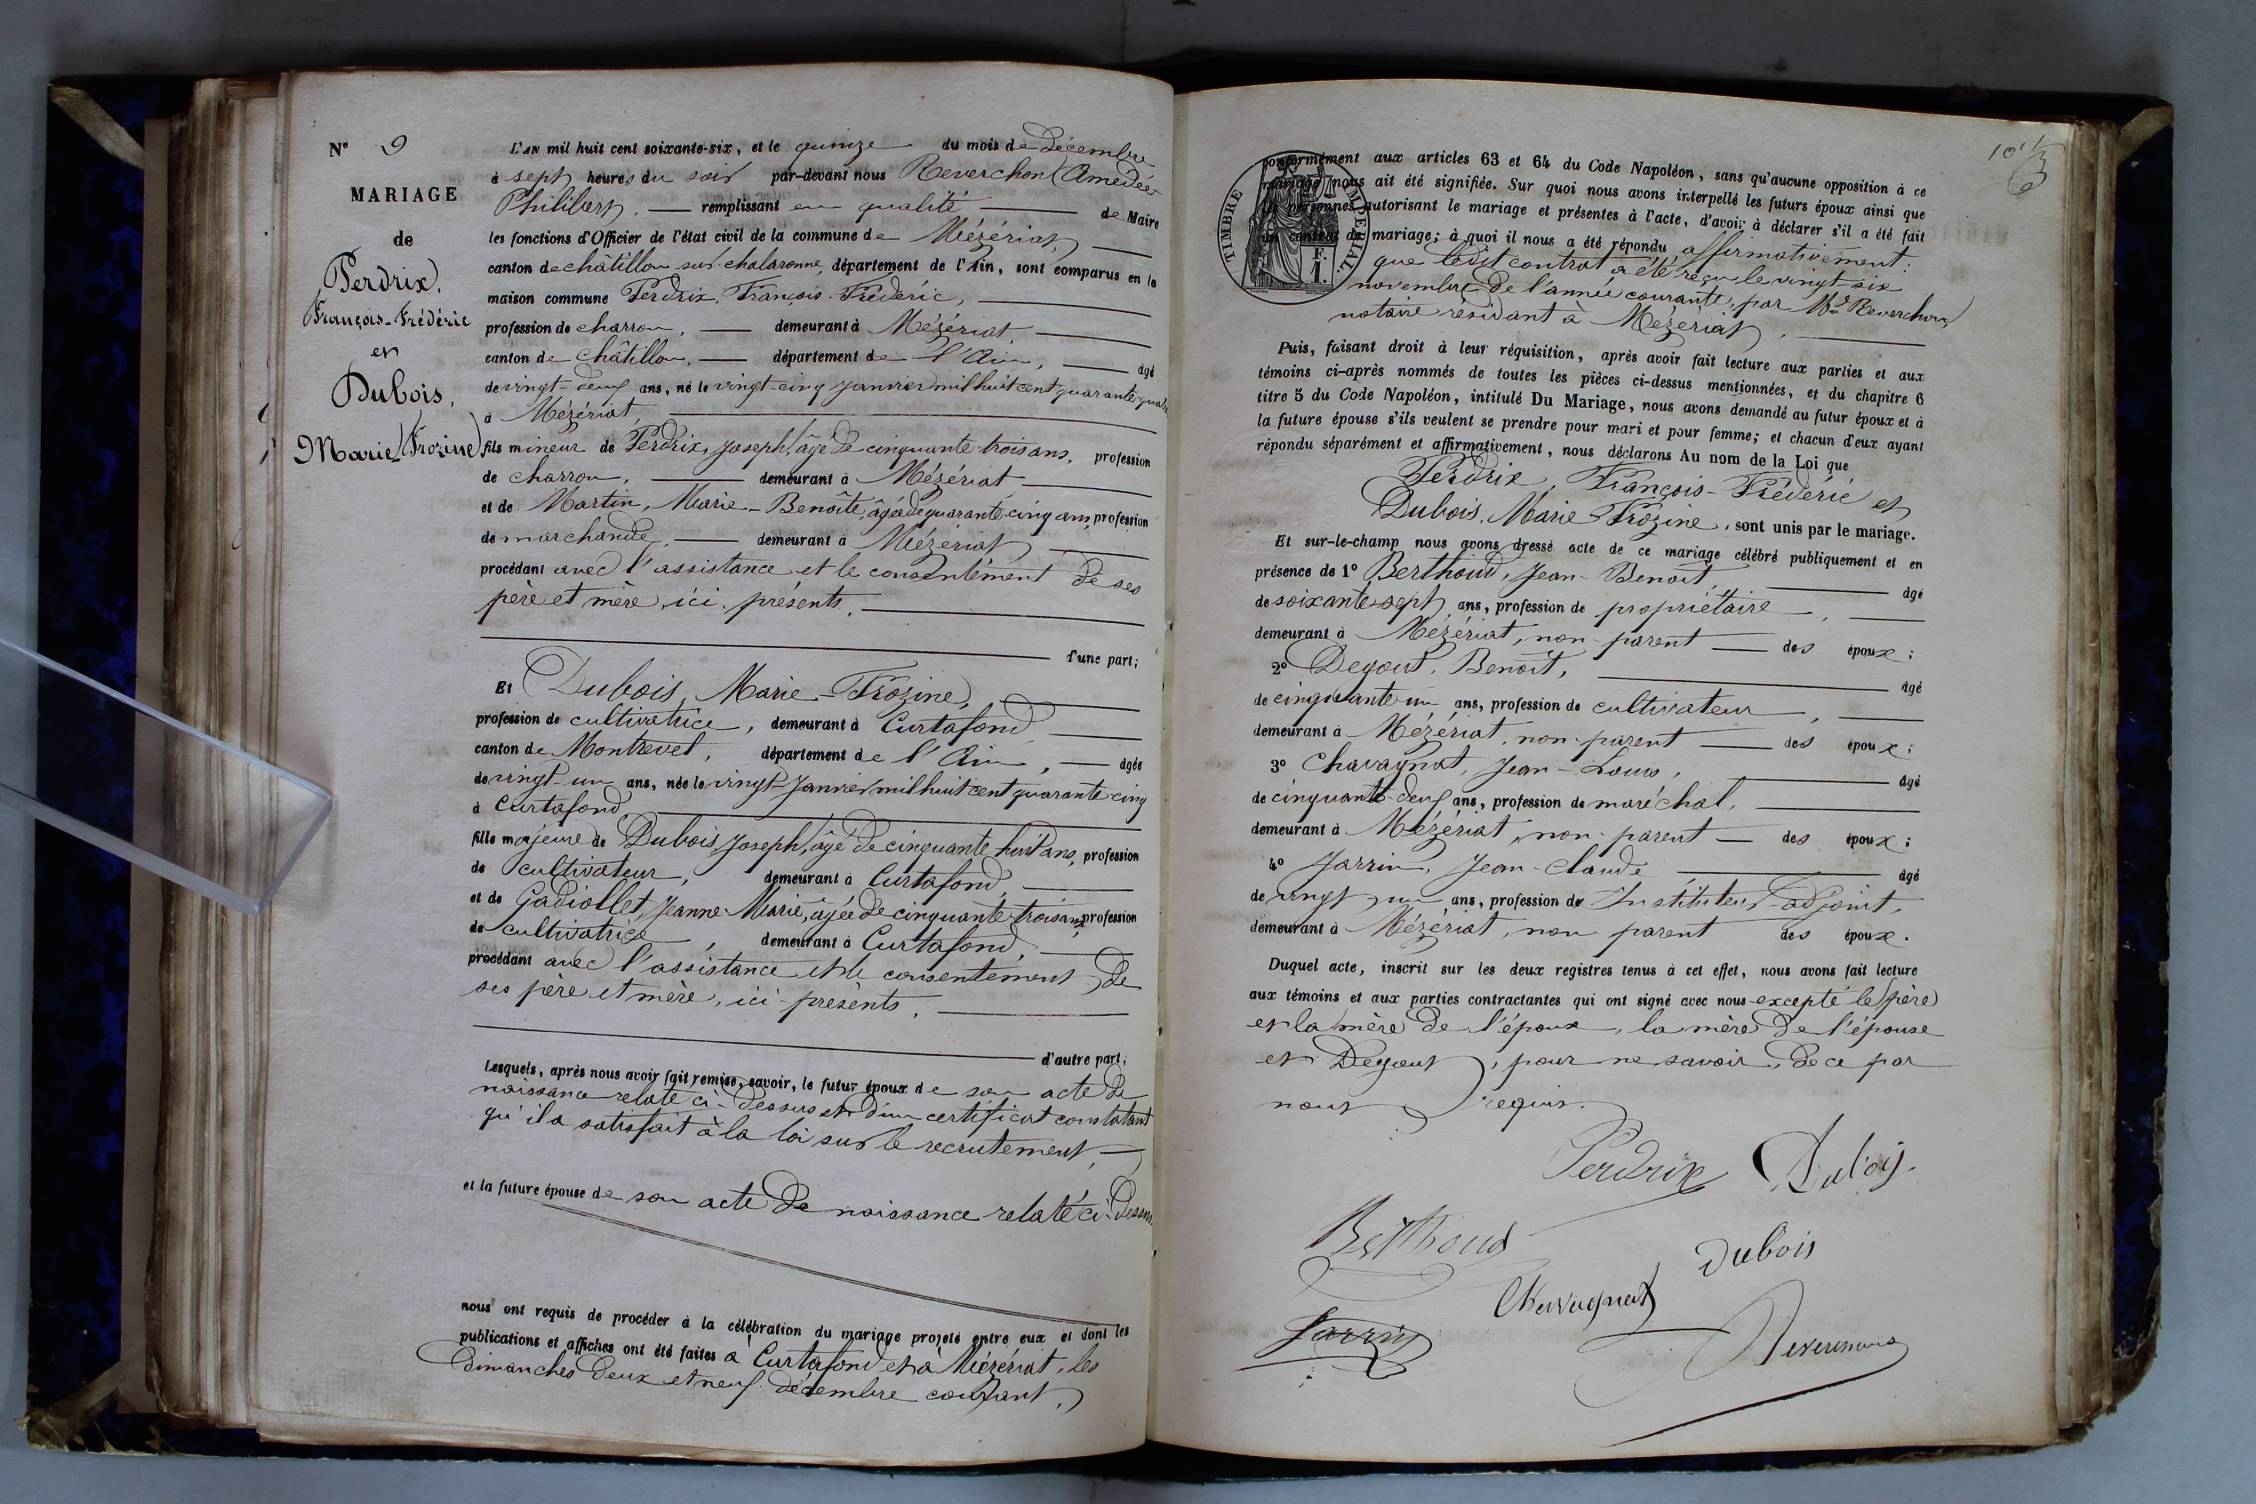 N° 9
MARIAGE
de
Perdrix,
François-Frédéric
et
Dubois,
Marie-Frozine
L'AN mil huit cent soixante-six, et le quinze du mois de décembre
à sept heures du soir par-devant nous Reverchon (Amédée
Philibert, remplissant en qualité de Maire
les fonctions d'Officier de l'état civil de la commune de Mézériat,
canton de châtillon sur chalaronne, département de l'Ain, sont comparus en la
maison commune Perdrix, François-Frédéric,
profession de charron, demeurant à Mézériat,
canton de châtillon, département de l'Ain, âgé
de vingt-deux ans, né le vingt-cinq janvier mil huit cent quarante-quatre
à Mézériat,
fils mineur de Perdrix, Joseph, âgé de cinquante-trois ans, profession
de charron, demeurant à Mézériat
et de Martin, Marie-Benoîte, âgée de quarante-cinq ans, profession
de marchande, demeurant à Mézériat
procédant avec l'assistance et le consentement de ses
père et mère, ici présents,
d'une part;
Et Dubois, Marie-Frozine,
profession de cultivatrice, demeurant à Curtafond,
canton de Montrevel, département de l'Ain, âgée
de vingt-un ans, née le vingt Janvier mil huit cent quarante-cinq
à Curtafond,
fille majeure de Dubois, Joseph, âgé de cinquante-huit ans, profession
de cultivateur, demeurant à Curtafond,
et de Gadiollet, Jeanne-Marie, âgée de cinquante-trois ans, profession
de cultivatrice, demeurant à Curtafond,
procédant avec l'assistance et le consentement de
ses père et mère, ici présents,
d'autre part;
Lesquels, après nous avoir fait remise, savoir, le futur époux de son acte de
naissance relaté ci-dessus et d'un certificat constatant
qu'il a satisfait à la loi sur le recrutement,
et la future épouse de son acte de naissance relaté ci-dessus
nous ont requis de procéder à la célébration du mariage projeté entre eux et dont les
publications et affiches ont été faites à Curtafond et à Mézériat, les
dimanches deux et neuf décembre courant,
101
TIMBRE IMPÉRIAL
F.
1.
conformément aux articles 63 et 64 du Code Napoléon, sans qu'aucune opposition à ce
mariage nous ait été signifiée. Sur quoi nous avons interpellé les futurs époux ainsi que
les personnes autorisant le mariage et présentes à l'acte, d'avoir à déclarer s'il a été fait
un contrat de mariage; à quoi il nous a été répondu affirmativement:
que ledit contrat a été reçu le vingt-six
novembre de l'année courante, par Me Reverchon,
notaire résidant à Mézériat,
Puis, faisant droit à leur réquisition, après avoir fait lecture aux parties et aux
témoins ci-après nommés de toutes les pièces ci-dessus mentionnées, et du chapitre 6
titre 5 du Code Napoléon, intitulé Du Mariage, nous avons demandé au futur époux et à
la future épouse s'ils veulent se prendre pour mari et pour femme; et chacun d'eux ayant
répondu séparément et affirmativement, nous déclarons Au nom de la Loi que
Perdrix, François-Frédéric et
Dubois, Marie-Frozine, sont unis par le mariage.
Et sur-le-champ nous avons dressé acte de ce mariage célébré publiquement et en
présence de 1° Berthoud, Jean-Benoît, âgé
de soixante-sept ans, profession de propriétaire,
demeurant à Mézériat, non parent des époux;
2° Degout, Benoît, âgé
de cinquante-un ans, profession de cultivateur,
demeurant à Mézériat, non parent des époux;
3° Chavagnat, Jean-Louis, âgé
de cinquante-deux ans, profession de maréchal,
demeurant à Mézériat, non parent des époux;
4° Jarrin, Jean-Claude, âgé
de vingt-un ans, profession de Instituteur adjoint,
demeurant à Mézériat, non parent des époux.
Duquel acte, inscrit sur les deux registres tenus à cet effet, nous avons fait lecture
aux témoins et aux parties contractantes qui ont signé avec nous excepté le père
et la mère de l'époux, la mère de l'épouse
et Degout, pour ne savoir, de ce par
nous requis.
Perdrix Dubois
Berthoud Dubois
Chavagnat
Jarrin Reverchon